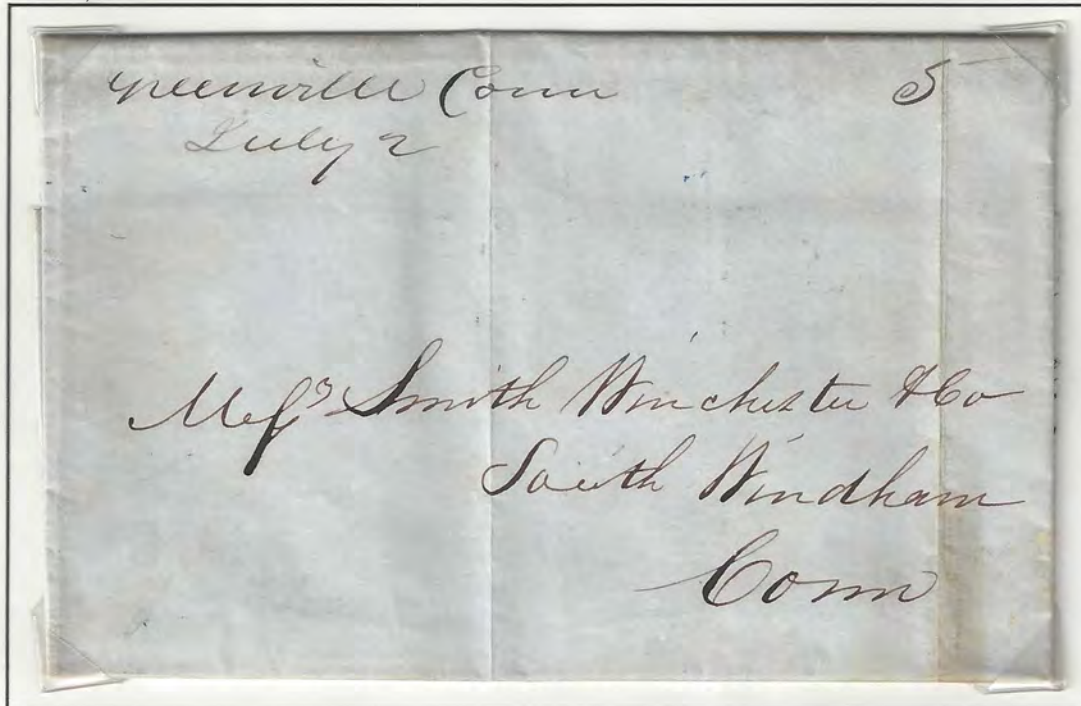 Greenville Conn 5
July 2
Messrs Smith Winchester & Co
South Windham
Conn